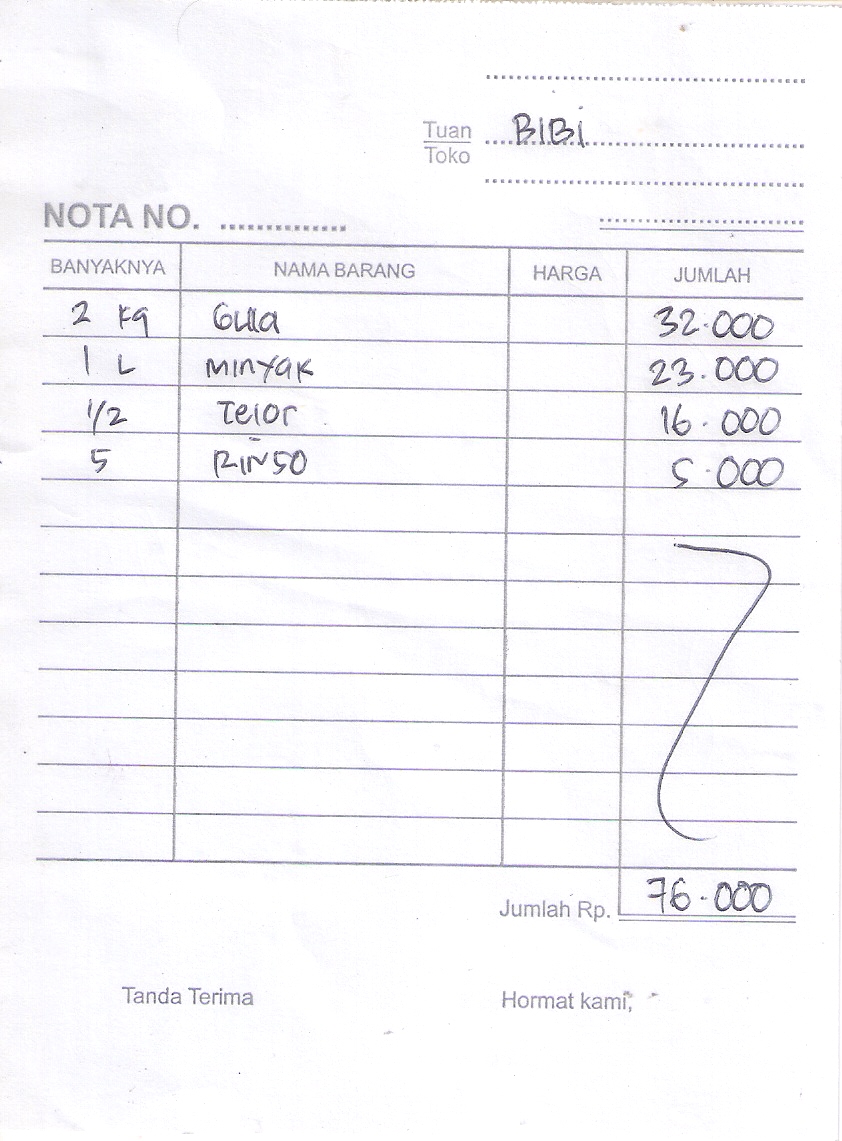 Tuan BIBi
Toko
NOTA NO.
BANYAKNYA NAMA BARANG HARGA JUMLAH
2 kg Gula 32.000
1 L MINYAK 23.000
1/2 Telor 16.000
5 RINSO 5.000
Jumlah Rp. 76.000
Tanda Terima Hormat kami,